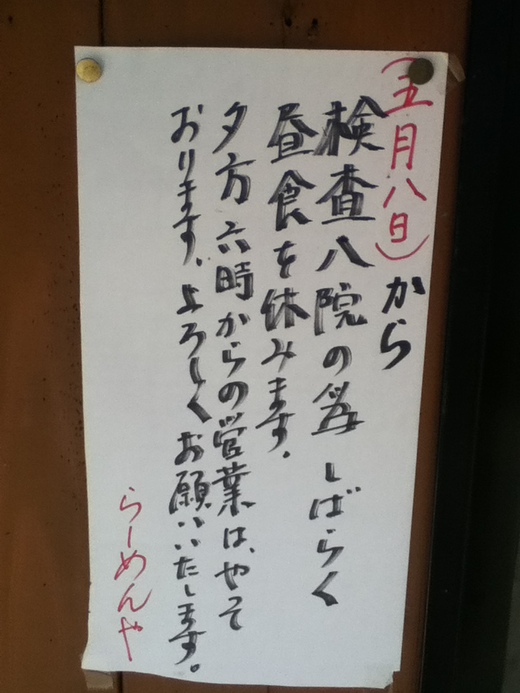 (五月八日)から
検査入院の為しばらく
昼食を休みます。
夕方六時からの営業は、やって
おります、よろしくお願いいたします。
らーめんや